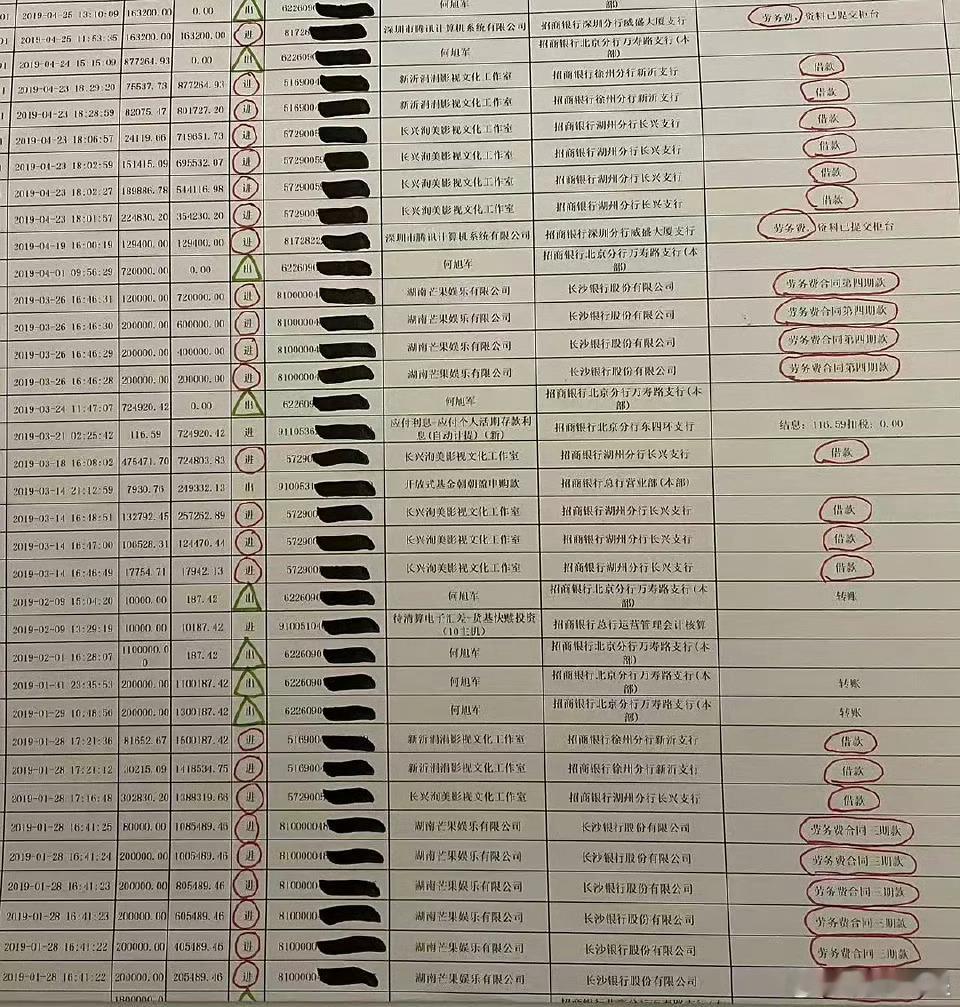 01 2019-04-25 13:10:09 163200.00 0.00 出 6226090 何旭军 招商银行北京分行万寿路支行(本部)
01 2019-04-25 11:53:35 163200.00 163200.00 进 81728 深圳市腾讯计算机系统有限公司 招商银行深圳分行威盛大厦支行 劳务费,资料已提交柜台
01 2019-04-24 15:15:09 877264.93 0.00 出 6226090 何旭军 招商银行北京分行万寿路支行(本部)
2019-04-23 18:29:20 75537.73 877264.93 进 5169004 新沂润润影视文化工作室 招商银行徐州分行新沂支行 借款
2019-04-23 18:28:59 82075.47 801727.20 进 516900 新沂润润影视文化工作室 招商银行徐州分行新沂支行 借款
2019-04-23 18:06:57 24119.66 719651.73 进 5729005 长兴洵美影视文化工作室 招商银行湖州分行长兴支行 借款
2019-04-23 18:02:59 151415.09 695532.07 进 57290059 长兴洵美影视文化工作室 招商银行湖州分行长兴支行 借款
2019-04-23 18:02:27 189886.78 544116.98 进 5729005 长兴洵美影视文化工作室 招商银行湖州分行长兴支行 借款
2019-04-23 18:01:57 224830.20 354230.20 进 572900 长兴洵美影视文化工作室 招商银行湖州分行长兴支行 借款
2019-04-19 16:00:19 129400.00 129400.00 进 8172822 深圳市腾讯计算机系统有限公司 招商银行深圳分行威盛大厦支行 劳务费,资料已提交柜台
2019-04-01 09:56:29 720000.00 0.00 出 622609 何旭军 招商银行北京分行万寿路支行(本部)
2019-03-26 16:46:31 120000.00 720000.00 进 81000004 湖南芒果娱乐有限公司 长沙银行股份有限公司 劳务费合同第四期款
2019-03-26 16:46:30 200000.00 600000.00 进 81000004 湖南芒果娱乐有限公司 长沙银行股份有限公司 劳务费合同第四期款
2019-03-26 16:46:29 200000.00 400000.00 进 81000004 湖南芒果娱乐有限公司 长沙银行股份有限公司 劳务费合同第四期款
2019-03-26 16:46:28 200000.00 200000.00 进 8100004 湖南芒果娱乐有限公司 长沙银行股份有限公司 劳务费合同第四期款
2019-03-24 11:47:07 724920.42 0.00 出 62260 何旭军 招商银行北京分行万寿路支行(本部)
2019-03-21 02:25:42 116.59 724920.42 进 9110536 应付利息-应付个人活期存款利息(自动计提)(新) 招商银行北京分行东四环支行 结息:116.59扣税:0.00
2019-03-18 16:08:02 475471.70 724803.83 进 57290 长兴洵美影视文化工作室 招商银行湖州分行长兴支行 借款
2019-03-14 21:12:59 7930.76 249332.13 出 9100531 开放式基金朝朝盈申购款 招商银行总行营业部(本部)
2019-03-14 16:48:51 132792.45 257262.89 进 572900 长兴洵美影视文化工作室 招商银行湖州分行长兴支行 借款
2019-03-14 16:47:00 106528.31 124470.44 进 572900 长兴洵美影视文化工作室 招商银行湖州分行长兴支行 借款
2019-03-14 16:46:49 17754.71 17942.13 进 572900 长兴洵美影视文化工作室 招商银行湖州分行长兴支行 借款
2019-02-09 15:04:20 10000.00 187.42 出 6226090 何旭军 招商银行北京分行万寿路支行(本部) 转账
2019-02-09 13:29:19 10000.00 10187.42 进 91005104 待清算电子汇差-货基快赎投资(10主机) 招商银行总行运营管理会计核算
2019-02-01 16:28:07 1100000.00 187.42 出 622609 何旭军 招商银行北京分行万寿路支行(本部)
2019-01-31 23:35:53 200000.00 1100187.42 出 6226090 何旭军 招商银行北京分行万寿路支行(本部) 转账
2019-01-29 10:48:56 200000.00 1300187.42 出 622609 何旭军 招商银行北京分行万寿路支行(本部) 转账
2019-01-28 17:21:36 81652.67 1500187.42 进 516900 新沂润润影视文化工作室 招商银行徐州分行新沂支行 借款
2019-01-28 17:21:12 30215.09 1418534.75 进 516900 新沂润润影视文化工作室 招商银行徐州分行新沂支行 借款
2019-01-28 17:16:48 302830.20 1388319.66 进 5729005 长兴洵美影视文化工作室 招商银行湖州分行长兴支行 借款
2019-01-28 16:41:25 80000.00 1085489.46 进 810000048 湖南芒果娱乐有限公司 长沙银行股份有限公司 劳务费合同三期款
2019-01-28 16:41:24 200000.00 1005489.46 进 81000004 湖南芒果娱乐有限公司 长沙银行股份有限公司 劳务费合同三期款
2019-01-28 16:41:23 200000.00 805489.46 进 8100000 湖南芒果娱乐有限公司 长沙银行股份有限公司 劳务费合同三期款
2019-01-28 16:41:23 200000.00 605489.46 进 8100000 湖南芒果娱乐有限公司 长沙银行股份有限公司 劳务费合同三期款
2019-01-28 16:41:22 200000.00 405489.46 进 8100000 湖南芒果娱乐有限公司 长沙银行股份有限公司 劳务费合同三期款
2019-01-28 16:41:22 200000.00 205489.46 进 8100000 湖南芒果娱乐有限公司 长沙银行股份有限公司